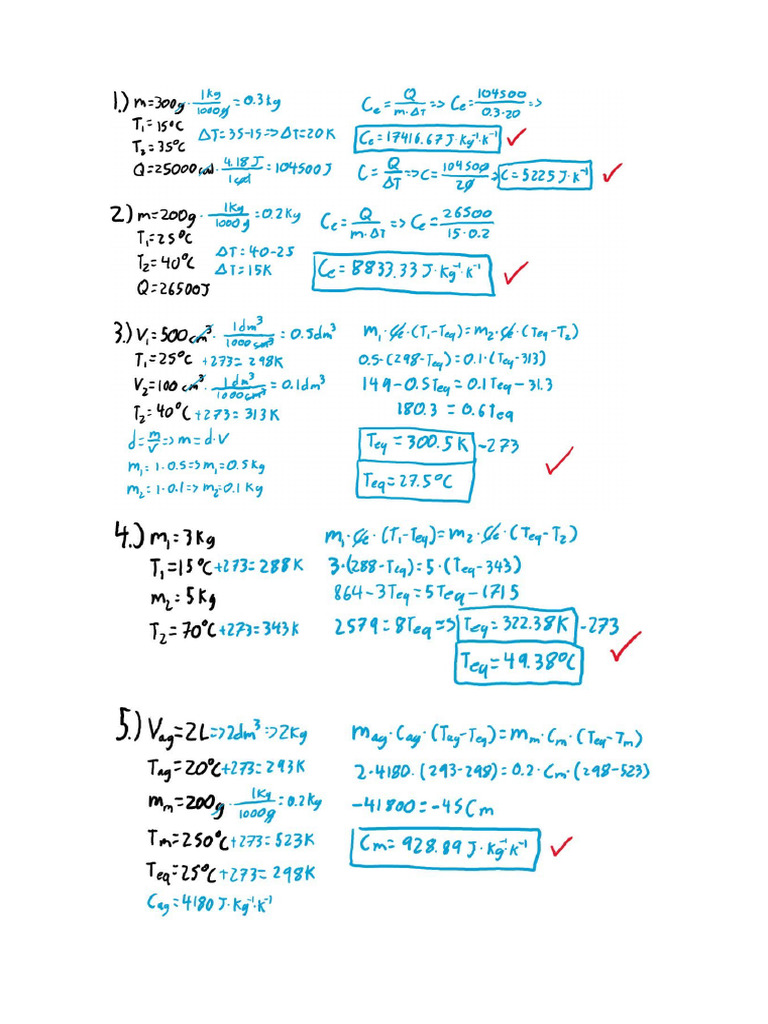 1.) m=300g · 1kg/1000g = 0.3kg
T₁=15ºC
T₃=35ºC
ΔT=35-15=>ΔT=20K
Q=25000 cal · 4.18 J/1 cal = 104500J
Ce = Q/m·ΔT => Ce = 104500/0.3·20 =>
Ce=17416.67 J·Kg⁻¹·K⁻¹
C = Q/ΔT => C = 104500/20 => C=5225 J·K⁻¹
2.) m=200g · 1Kg/1000g = 0.2Kg
T₁=25ºC
T₂=40ºC
Q=26500J
ΔT=40-25
ΔT=15K
Ce = Q/m·ΔT => Ce = 26500/15·0.2
Ce=8833.33 J·Kg⁻¹·K⁻¹
3.) V₁=500 cm³ · 1dm³/1000 cm³ = 0.5dm³
T₁=25ºC +273=298K
V₂=100 cm³ · 1dm³/1000 cm³ = 0.1dm³
T₂=40ºC +273=313K
d = m/V => m=d·V
m₁=1·0.5=>m₁=0.5Kg
m₂=1·0.1=>m₂=0.1Kg
m₁·Ce·(T₁-Teq)=m₂·Ce·(Teq-T₂)
0.5·(298-Teq)=0.1·(Teq-313)
149-0.5Teq=0.1Teq-31.3
180.3=0.6Teq
Teq=300.5K -273
Teq=27.5ºC
4.) m₁=3Kg
T₁=15ºC +273=288K
m₂=5Kg
T₂=70ºC +273=343K
m₁·Ce·(T₁-Teq)=m₂·Ce·(Teq-T₂)
3·(288-Teq)=5·(Teq-343)
864-3Teq=5Teq-1715
2579=8Teq=>Teq=322.38K -273
Teq=49.38ºC
5.) Vag=2L=>2dm³=>2Kg
Tag=20ºC +273=293K
mm=200g · 1Kg/1000g = 0.2Kg
Tm=250ºC +273=523K
Teq=25ºC +273=298K
Cag=4180 J·Kg⁻¹·K⁻¹
mag·Cag·(Tag-Teq)=mm·Cm·(Teq-Tm)
2·4180·(293-298)=0.2·Cm·(298-523)
-41800=-45Cm
Cm=928.89 J·Kg⁻¹·K⁻¹